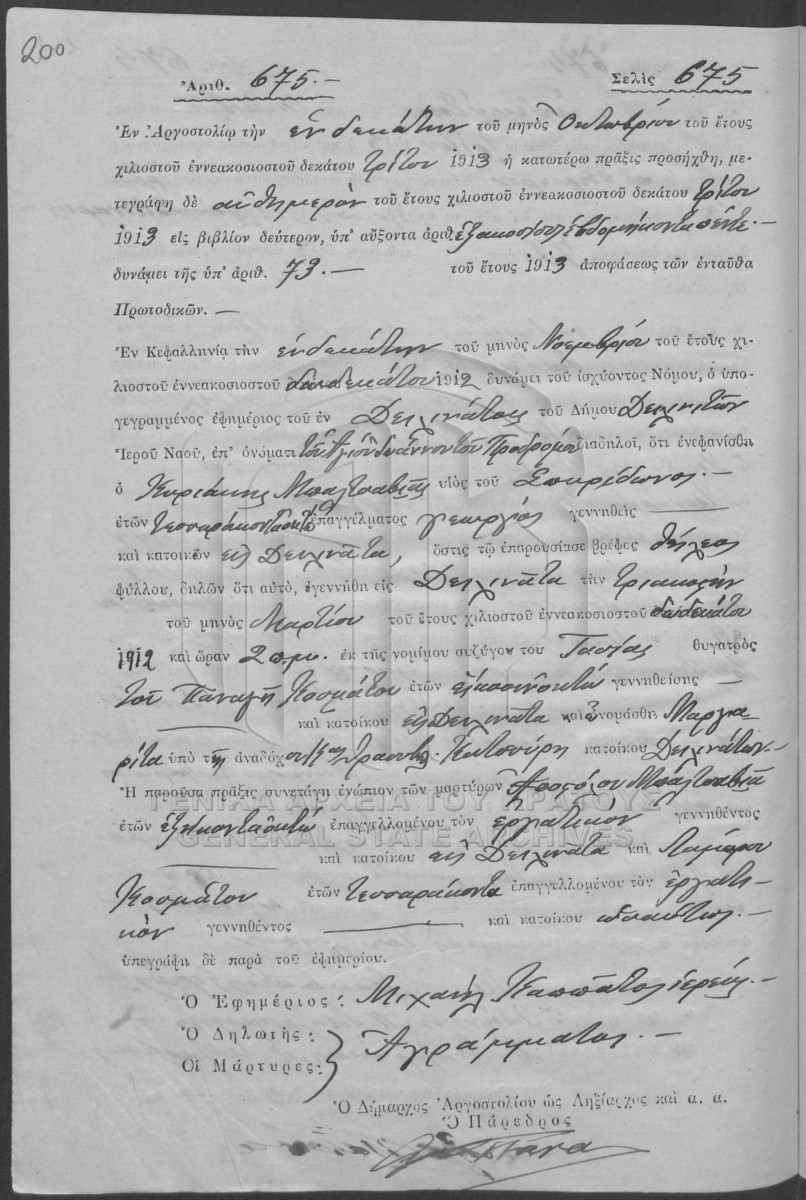 200
Ἀριθ. 675.— Σελὶς 675
Ἐν Ἀργοστολίῳ τὴν ἑνδεκάτην τοῦ μηνὸς Ὀκτωβρίου τοῦ ἔτους
χιλιοστοῦ ἐννεακοσιοστοῦ δεκάτου τρίτου 1913 ἡ κατωτέρω πρᾶξις προσήχθη, με-
τεγράφη δὲ αὐθημερὸν τοῦ ἔτους χιλιοστοῦ ἐννεακοσιοστοῦ δεκάτου τρίτου
1913 εἰς βιβλίον δεύτερον, ὑπ' αὔξοντα ἀριθ. ἑξακόσια ἑβδομήκοντα πέντε.—
δυνάμει τῆς ὑπ' ἀριθ. 73.— τοῦ ἔτους 1913 ἀποφάσεως τῶν ἐνταῦθα
Πρωτοδικῶν.—
Ἐν Κεφαλληνίᾳ τὴν ἑνδεκάτην τοῦ μηνὸς Νοεμβρίου τοῦ ἔτους χι-
λιοστοῦ ἐννεακοσιοστοῦ δωδεκάτου 1912 δυνάμει τοῦ ἰσχύοντος Νόμου, ὁ ὑπο-
γεγραμμένος ἐφημέριος τοῦ ἐν Δειλινάτοις τοῦ Δήμου Δειλινατῶν
Ἱεροῦ Ναοῦ, ἐπ' ὀνόματι τοῦ Ἁγίου Ἰωάννου τοῦ Προδρόμου διαδηλοῖ, ὅτι ἐνεφανίσθη
ὁ Κυριάκης Μπαλτσαβιᾶς υἱὸς τοῦ Σπυρίδωνος.—
ἐτῶν τεσσαράκοντα ὀκτὼ ἐπαγγέλματος γεωργὸς γεννηθεὶς —
καὶ κατοικῶν εἰς Δειλινάτα, ὅστις τῷ ἐπαρουσίασε βρέφος θήλεος
φύλλου, δηλῶν ὅτι αὐτὸ, ἐγεννήθη εἰς Δειλινάτα τὴν τριακοστὴν
τοῦ μηνὸς Μαρτίου τοῦ ἔτους χιλιοστοῦ ἐννεακοσιοστοῦ δωδεκάτου
1912 καὶ ὥραν 2 πμ. ἐκ τῆς νομίμου συζύγου του Τασίας θυγατρὸς
τοῦ Παναγῆ Κοσμάτου ἐτῶν εἴκοσι ὀκτὼ γεννηθείσης —
— καὶ κατοίκου εἰς Δειλινάτα καὶ ὠνομάσθη Μαργα-
ρίτα ὑπὸ τῆς ἀναδόχου κατοίκου Δειλινάτων.—
Ἡ παροῦσα πρᾶξις συνετάγη ἐνώπιον τῶν μαρτύρων Ἀποστόλου Μπαλτσαβιᾶ
ἐτῶν ἑξήκοντα ὀκτὼ ἐπαγγελλομένου τὸν ἐργατικὸν γεννηθέντος
— καὶ κατοίκου εἰς Δειλινάτα καὶ
Κοσμάτου ἐτῶν τεσσαράκοντα ἐπαγγελλομένου τὸν ἐργατι-
κὸν γεννηθέντος — καὶ κατοίκου ὡσαύτως.—
ὑπεγράφη δὲ παρὰ τοῦ ἐφημερίου.
Ὁ Ἐφημέριος: Μιχαὴλ Καππάτος ἱερεύς.—
Ὁ Δηλωτὴς:
Οἱ Μάρτυρες: Ἀγράμματοι.—
Ὁ Δήμαρχος Ἀργοστολίου ὡς Ληξίαρχος καὶ α. α.
Ὁ Πάρεδρος
ΓΕΝΙΚΑ ΑΡΧΕΙΑ ΤΟΥ ΚΡΑΤΟΥΣ
GENERAL STATE ARCHIVES